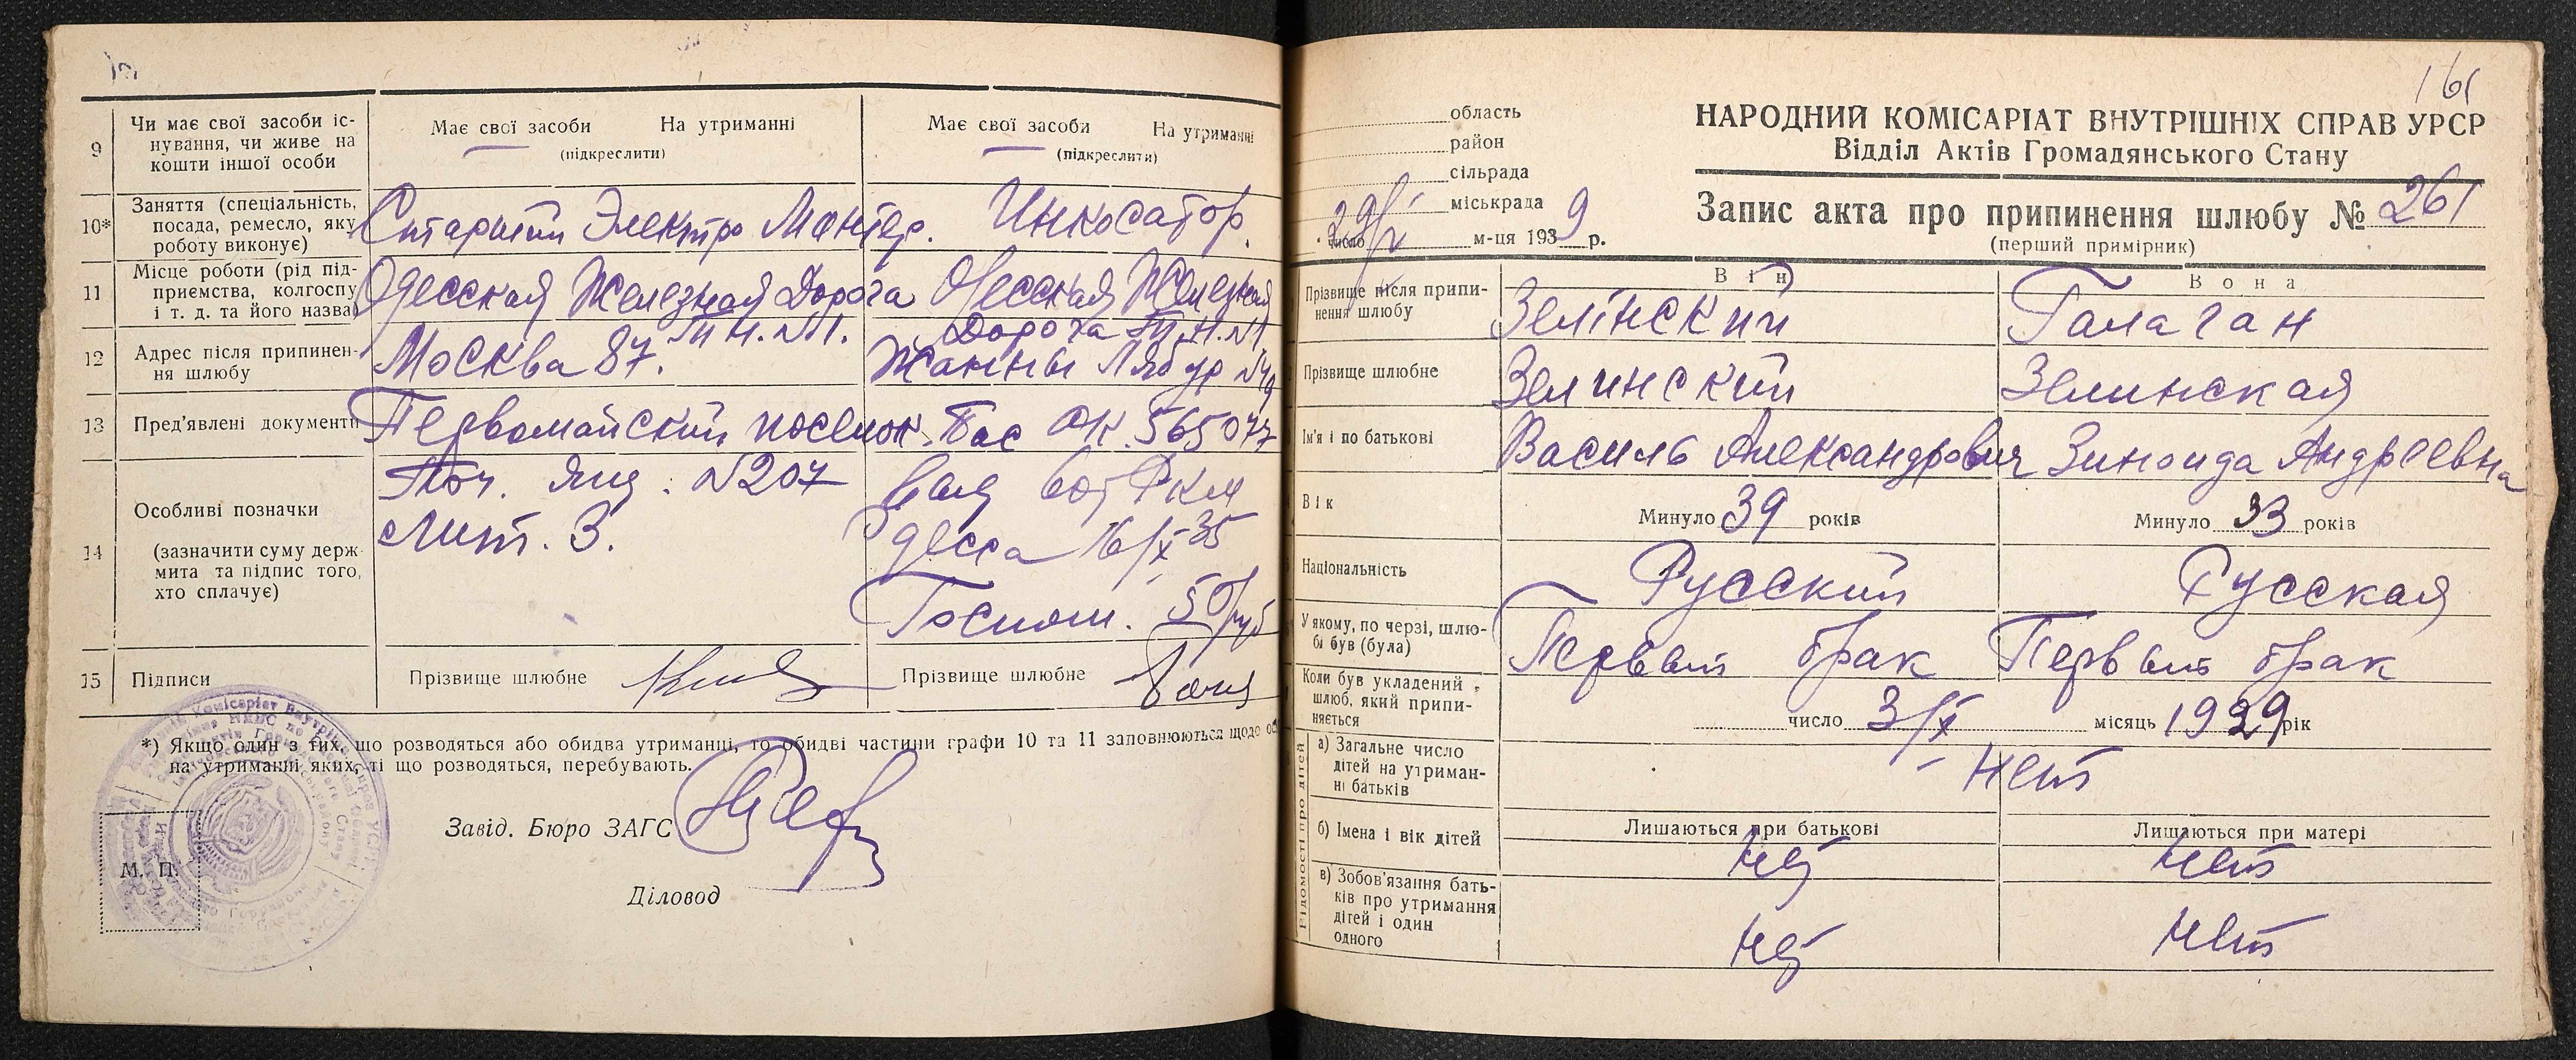 9
Чи має свої засоби іс-
нування, чи живе на
кошти іншої особи
Має свої засоби На утриманні
(підкреслити)
Має свої засоби На утриманні
(підкреслити)
10*
Заняття (спеціальність,
посада, ремесло, яку
роботу виконує)
Старший Электро Монтер.
Инкосатор.
11
Місце роботи (рід під-
приємства, колгоспу
і т. д. та його назва)
Одесская Железная Дорога
Т Н. №1.
Одесская Железная
Дорога Т.Н. №1
12
Адрес після припинен-
ня шлюбу
Москва 87.
Жанны Лябур №
13
Пред'явлені документи
Первомайский поселок.
Пас ОК. 565077
14
Особливі позначки
(зазначити суму держ-
мита та підпис того,
хто сплачує)
Поч. Ящ. №207
Лит. З.
РКМ
Одесса 16/X-35
Госпош. 50 руб
15
Підписи
Прізвище шлюбне
Прізвище шлюбне
*) Якщо один з тих, що розводяться або обидва утриманці, то обидві частини графи 10 та 11 заповнюються щодо
на утриманні яких, ті що розводяться, перебувають.
Завід. Бюро ЗАГС
М. П.
Діловод
161
область
район
сільрада
міськрада
число 29/X м-ця 1939 р.
НАРОДНИЙ КОМІСАРІАТ ВНУТРІШНІХ СПРАВ УРСР
Відділ Актів Громадянського Стану
Запис акта про припинення шлюбу № 261
(перший примірник)
Він
Вона
Прізвище після припи-
нення шлюбу
Зелінский
Галаган
Прізвище шлюбне
Зелинский
Зелинская
Ім'я і по батькові
Василь Александрович
Зиноида Андреевна
Вік
Минуло 39 років
Минуло 33 років
Національність
Русский
Русская
У якому, по черзі, шлю-
бі був (була)
Первый брак
Первый брак
Коли був укладений
шлюб, який припи-
няється
число 3/X місяць 1929 рік
Відомості про дітей
а) Загальне число
дітей на утриман-
ні батьків
- нет
б) Імена і вік дітей
Лишаються при батькові
нет
Лишаються при матері
нет
в) Зобов'язання бать-
ків про утримання
дітей і один
одного
нет
нет